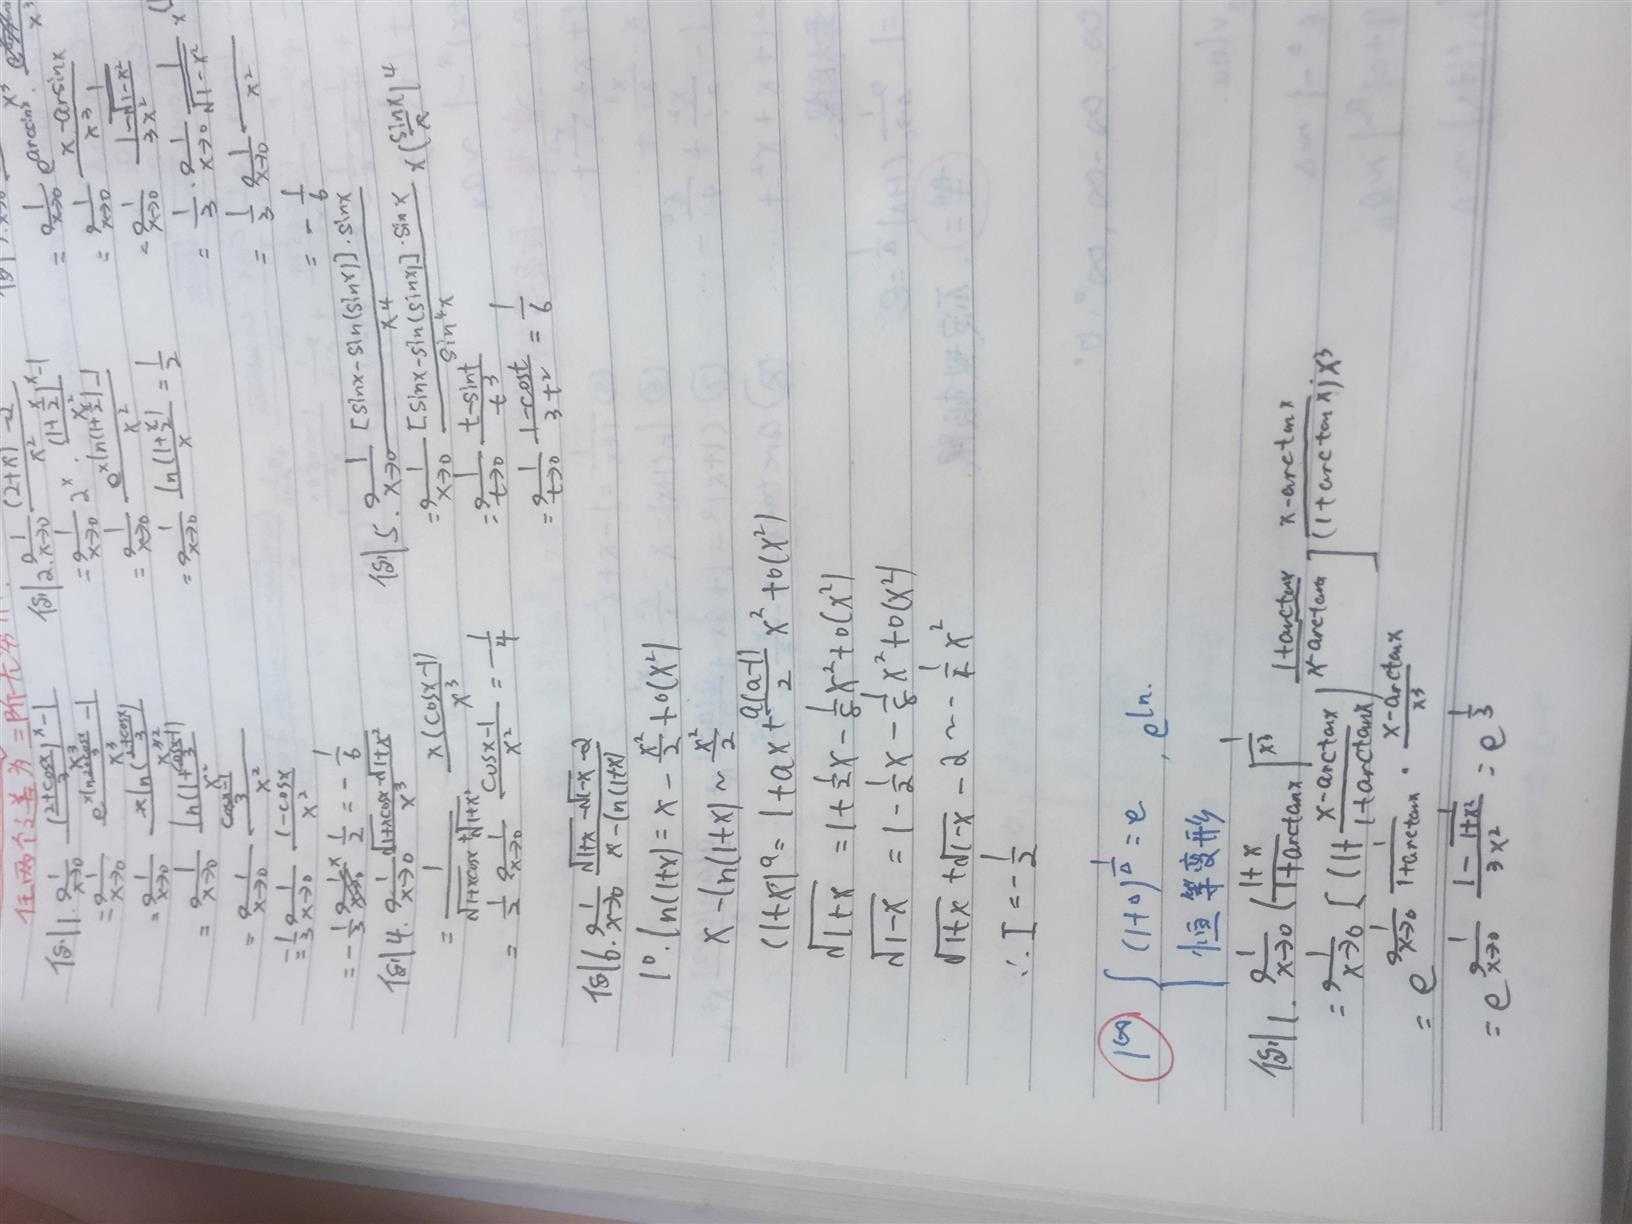 任两个之差为
例1. lim x→0 [((2+cosx)/3)^x -1]/x³
= lim x→0 [e^(x ln (2+cosx)/3) -1]/x³
= lim x→0 [x ln((2+cosx)/3)]/x³
= lim x→0 [ln(1+(cosx-1)/3)]/x²
= lim x→0 [(cosx-1)/3]/x²
= -1/3 lim x→0 (1-cosx)/x²
= -1/3 × 1/2 = -1/6
例2. lim x→0 [(2+x)^x -2^x]/x²
= lim x→0 2^x · [(1+x/2)^x -1]/x²
= lim x→0 [e^(x ln(1+x/2)) -1]/x²
= lim x→0 ln(1+x/2)/x = 1/2
= lim x→0 e^(arcsinx) · (x-arsinx)/x³
= lim x→0 (x-arsinx)/x³
= lim x→0 [1-1/√(1-x²)]/3x²
= 1/3 · lim x→0 1/√(1-x²) ×
= 1/3 lim x→0 /x²
= -1/6
例4. lim x→0 [√(1+xcosx) - √(1+x²)]/x³
= 1/[√(1+xcosx)+√(1+x²)] x(cosx-1)/x³
= 1/2 lim x→0 (cosx-1)/x² = -1/4
例5. lim x→0 [sinx-sin(sinx)]·sinx/x⁴
= lim x→0 [sinx-sin(sinx)]·sinx/sin⁴x ×(sinx/x)⁴
= lim t→0 (t-sint)/t³
= lim t→0 (1-cost)/3t² = 1/6
例6. lim x→0 [√(1+x) -√(1-x) -2]/[x-ln(1+x)]
1°. ln(1+x) = x - x²/2 + o(x²)
x-ln(1+x) ~ x²/2
(1+x)^a = 1+ax+ a(a-1)/2 x² + o(x²)
√(1+x) = 1+1/2x - 1/8x² + o(x²)
√(1-x) = 1-1/2x - 1/8x² + o(x²)
√(1+x) +√(1-x) -2 ~ -1/4x²
∴ I = -1/2
1^∞ { (1+Δ)^(1/Δ) = e , e^ln.
恒等变形
例1. lim x→0 ((1+x)/(1+arctanx))^(1/x³)
= lim x→0 [(1+ (x-arctanx)/(1+arctanx))^((1+arctanx)/(x-arctanx))]^((x-arctanx)/((1+arctanx)x³))
= e^(lim x→0 1/(1+arctanx) · (x-arctanx)/x³)
= e^(lim x→0 (1-1/(1+x²))/3x²) = e^(1/3)